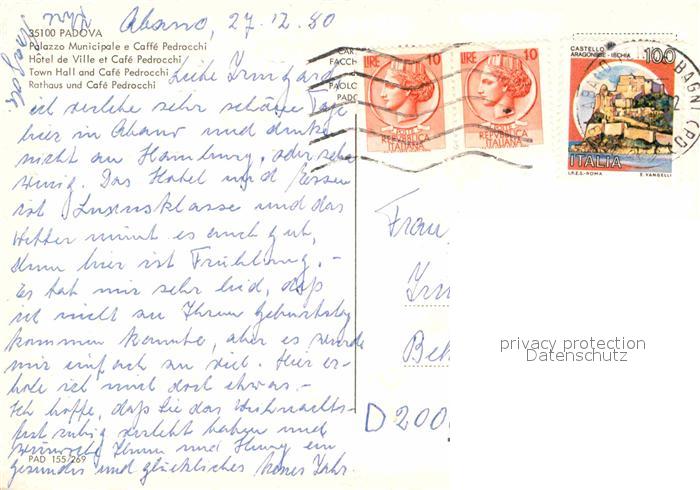 Abano, 27.12.80
35100 PADOVA
Palazzo Municipale e Caffé Pedrocchi
Hôtel de Ville et Café Pedrocchi
Town Hall and Café Pedrocchi
Rathaus und Café Pedrocchi
Liebe Irmgard
ich verlebe sehr schöne Tage
hier in Abano und denke
nicht an Hamburg, oder sehr
wenig. Das Hotel und Essen
ist Luxusklasse und das
Wetter meint es auch gut,
denn hier ist Frühling. -
Es tat mir sehr leid, daß
ich nicht zu Ihrem Geburtstag
kommen konnte, aber es wurde
mir einfach zu viel. Hier er-
hole ich mich doch etwas. -
Ich hoffe, daß Sie das Weihnachts-
fest ruhig verlebt haben und
wünsche Ihnen und Henry ein
gesundes und glückliches Neues Jahr.
PAD 155/269
CAR
FACCH
PAOLO
PADO
LIRE 10
POSTE
REPVBBLICA
ITALIANA
LIRE 10
POSTE
REPVBBLICA
ITALIANA
CASTELLO
ARAGONESE - ISCHIA
100
ITALIA
I.P.Z.S. - ROMA E. VANGELLI
BAGNI (PD)
Frau
Irm
Beh
D 200
privacy protection
Datenschutz